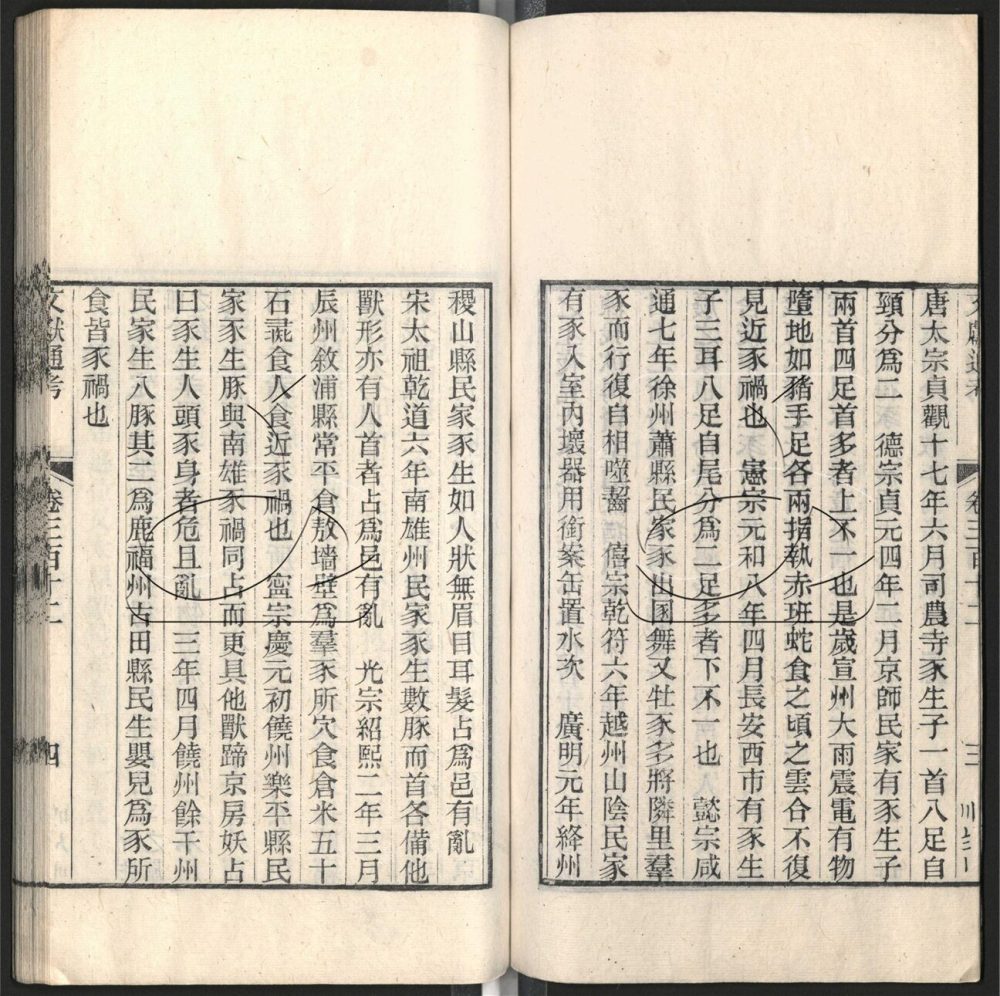 唐太宗貞觀十七年六月司農寺豕生子一首八足自
頸分爲二　德宗貞元四年二月京師民家有豕生子
兩首四足首多者上不一也是歲宣州大雨震電有物
墮地如豬手足各兩指執赤班蛇食之頃之雲合不復
見近豕禍也　憲宗元和八年四月長安西市有豕生
子三耳八足自尾分爲二足多者下不一也　懿宗咸
通七年徐州蕭縣民家豕出圂舞又牡豕多將隣里羣
豕而行復自相噬齧　僖宗乾符六年越州山陰民家
有豕入室內壞器用銜案缶置水次　廣明元年絳州
稷山縣民家豕生如人狀無眉目耳髮占爲邑有亂
宋太祖乾道六年南雄州民家豕生數豚而首各備他
獸形亦有人首者占爲邑有亂　光宗紹熙二年三月
辰州敘浦縣常平倉敖墻壁爲羣豕所穴食倉米五十
石彘食人食近豕禍也　寧宗慶元初饒州樂平縣民
家豕生豚與南雄豕禍同占而更具他獸蹄京房妖占
曰豕生人頭豕身者危且亂　三年四月饒州餘干州
民家生八豚其二爲鹿福州古田縣民生嬰兒爲豕所
食皆豕禍也
文獻通考　卷三百十二　四